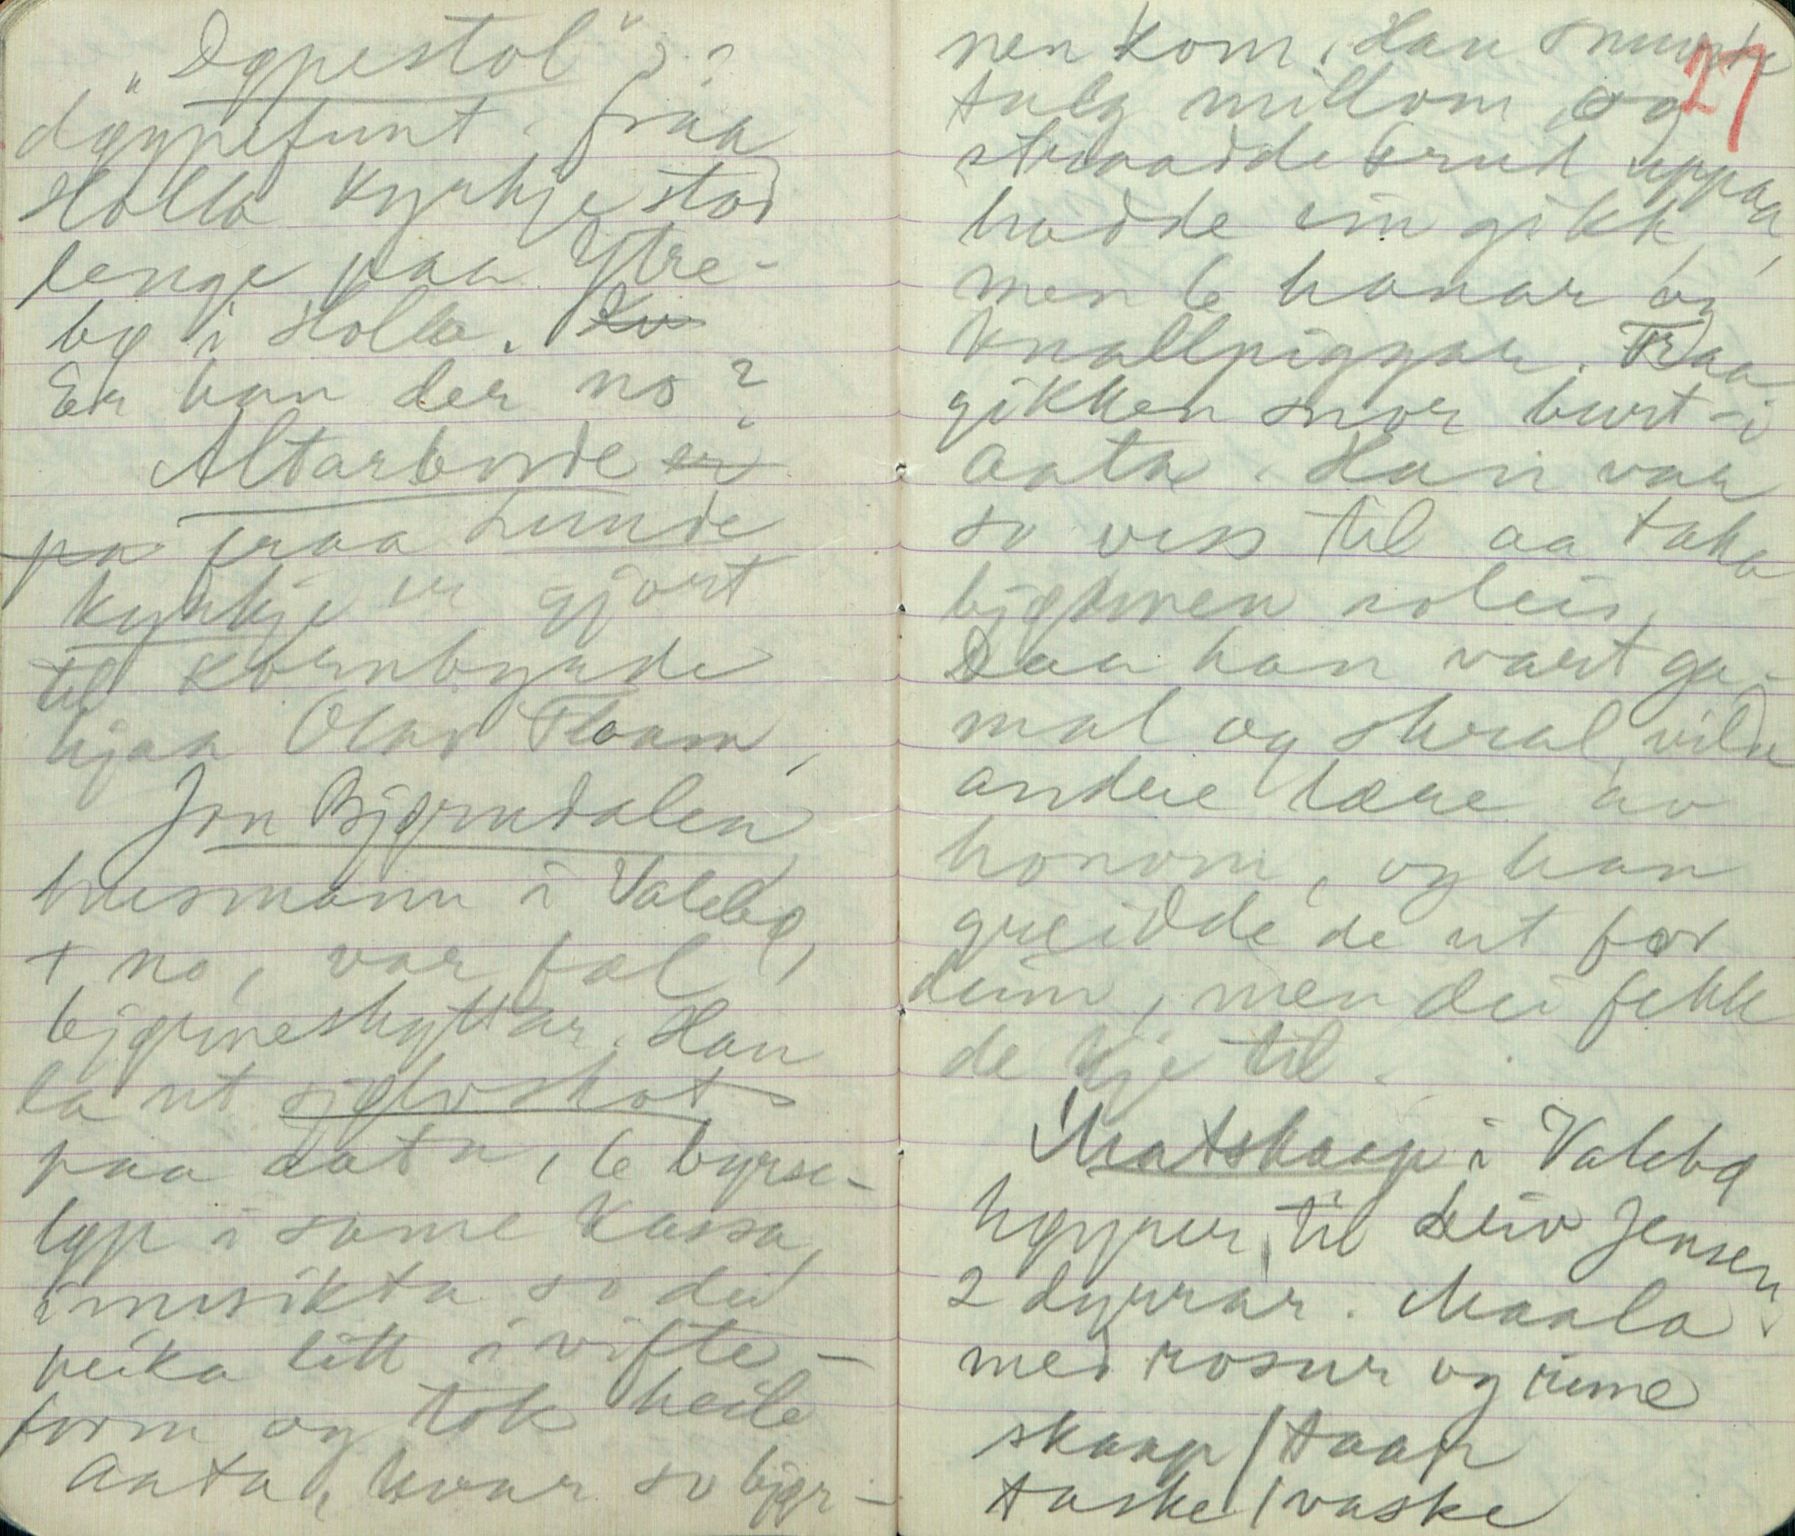 "Døpestol"??
døypefunt fraa
Holla kyrkje stod
lenge paa Ytre-
bø i Holla.
Er han der no?
Altarborde er
pa fraa Lunde
kyrkje er gjort
til kornbyrde
hjaa Olav Flaam,
Jon Bjørndalen
husmann i Valebø,
+ no, var fæl
bjørneskyttar. Han
la ut sjølvskot
paa aata, 6 byrse-
løp i same kassa,
innsikta so dei
peika litt i vifte-
form og tok heile
aata, kvar so bjør-
27
nen kom. Han smurde
talg millom og
straadde krud uppaa,
hadde ein gikk,
men 6 hanar og
knallpiggar. Fraa
gikken snor burt i
aata. Han var
so viss til aa taka
bjørnen soleis.
Daa han vart ga-
mal og skral, vilde
andre lære av
honom, og han
greidde de ut for
deim, men dei fekk
de kje til.
Matskaap i Valebø
høyrer til Leiv Jensen
2 dyrrar. Maala
med rosur og rune
skaap / taap
taske / vaske